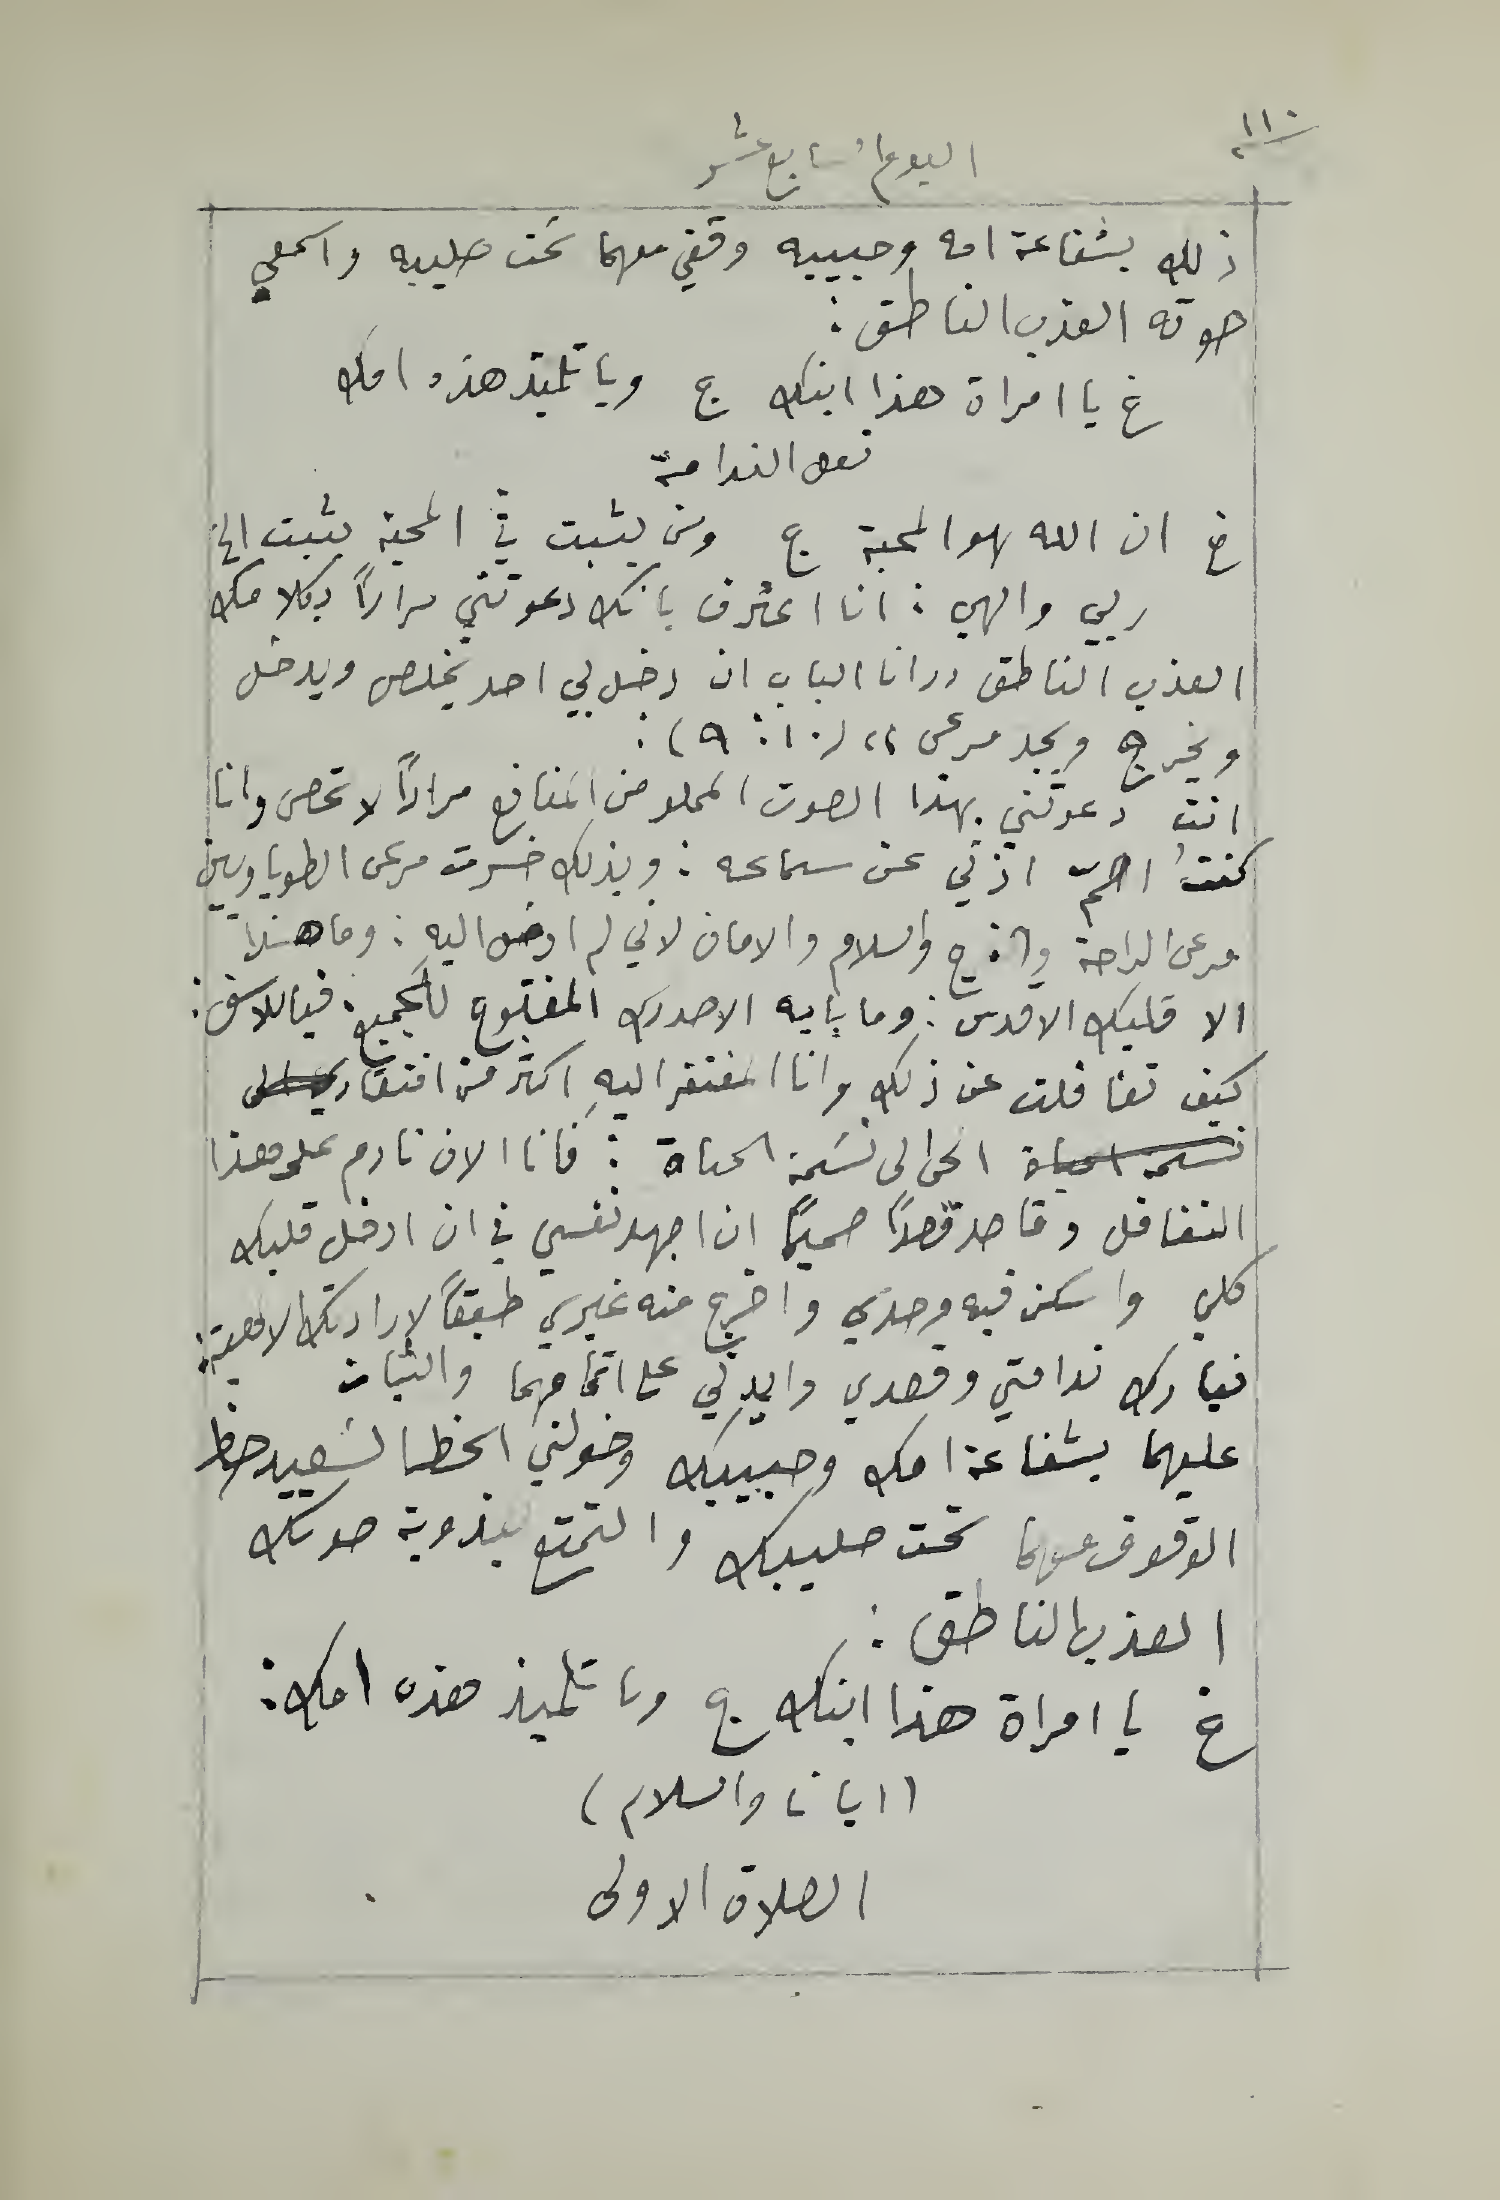 ١١٠
اليوم السابع عشر
ذلك بشفاعة امه وحبيبه وقفي معهما تحت صليبه واسمعي
صوته العذب الناطق :
خ يا امراة هذا ابنك ج ويا تلميذ هذه امك
فعل الندامة
خ ان الله لهو المحبة ج ومن يثبت في المحبة يثبت الخ
ربي والهي : انا اعترف بانك دعوتني مراراً بكلامك
العذب الناطق ,, انا الباب ان دخل بي احد يخلص ويدخل
ويخرج ويجد مرعى ,, (١٠ : ٩) :
انت دعوتني بهذا الصوت المملو من المنافع مراراً لا تحصى وانا
كنتُ اصمّ اذني عن سماعه : وبذلك خسرت مرعى الطوباويين
مرعى الراحة والفرح والسلام والامان لاني لم ادخل اليه : وما هذا
الا قلبك الاقدس : وما بابه الا صدرك المفتوح للجميع . فيا للاسف :
كيف تغافلت عن ذلك وانا المفتقر اليهِ اكثر من افتقاري الى
نسمة الحياة الحي الى نسَمة الحياة : فانا الان نادم على هذا
التغافل وقاصد قصداً صميماً ان اجهد نفسي في ان ادخل قلبك
كلي واسكن فيه وحدي واخرج منه غيري طبقاً لارادتك الالهية :
فبارك ندامتي وقصدي وايدني على اتمامهما والثبات
عليهما بشفاعة امك وحبيبك وخولني الحظ السعيد حظ
الوقوف معهما تحت صليبك والتمتع بعذوبة صوتك
العذب الناطق :
خ يا امراة هذا ابنك ج ويا تلميذ هذه امك :
(ابانا والسلام)
الصلاة الاولى